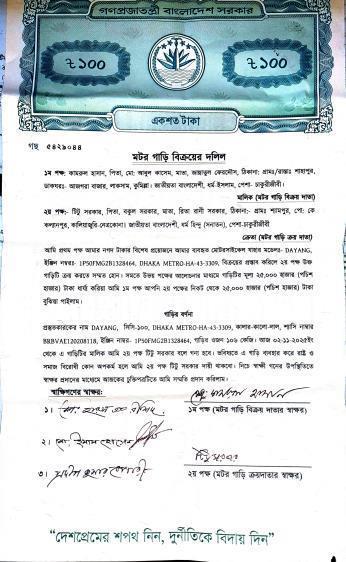 গণপ্রজাতন্ত্রী বাংলাদেশ সরকার
৳১০০ ৳১০০
একশত টাকা
গছ ৫৪২৯০৪৪
মটর গাড়ি বিক্রয়ের দলিল
১ম পক্ষ: কামরুল হাসান, পিতা, মো: আবুল কাসেম, মাতা, জান্নাতুল ফেরদৌস, ঠিকানা: গ্রামঃ/রাস্তাঃ শাহাপুর,
ডাকঘরঃ- আজগরা বাজার, লাকসাম, কুমিল্লা। জাতীয়তা বাংলাদেশী, ধর্ম-ইসলাম, পেশা-চাকুরীজীবী।
মালিক (মটর গাড়ি বিক্রয় দাতা)
২য় পক্ষ: টিটু সরকার, পিতা, বকুল সরকার, মাতা, রিতা রানী সরকার, ঠিকানা:- গ্রামঃ শ্যামপুর, পো: কে
কলানপুর, কালিয়াজুরি-নেত্রকোনা। জাতীয়তা বাংলাদেশী, ধর্ম হিন্দু (সনাতন), পেশা-চাকুরীজীবী।
ক্রেতা (মটর গাড়ি ক্রয় দাতা)
আমি প্রথম পক্ষ আমার নগদ টাকার বিশেষ প্রয়োজনে আমার ব্যবহৃত মোটরসাইকেল যাহার মডেলঃ- DAYANG,
ইঞ্জিন নম্বরঃ- 1P50FMG2B1328464, DHAKA METRO-HA-43-3309, বিক্রয়ের প্রস্তাব করিলে ২য় পক্ষ উক্ত
গাড়িটি ক্রয় করতে সম্মত হোন। সমতে উভয় পক্ষের আলোচনার মাধ্যমে গাড়িটির মূল্য 25,000 হাজার (পচিশ
হাজার) টাকা ধার্য্য করিয়া আমি ১ম পক্ষ আপনি ২য় পক্ষের নিকট থেকে 25,000 হাজার (পচিশ হাজার) টাকা
বুঝিয়া পাইলাম।
গাড়ির বর্ণনা
প্রস্তুতকারকের নাম DAYANG, সিসি-১০০, DHAKA METRO-HA-43-3309, কালার-কালো-লাল, শ্যাসি নাম্বার
BRBVAE120208118, ইঞ্জিন নম্বরঃ- 1P50FMG2B1328464, গাড়ির ওজন ১০৬ কেজি। আজ ০২-১১-২০২৫ইং
থেকে এ গাড়িটির মালিক আমি ২য় পক্ষ টিটু সরকার বলে গন্য হবে। ভবিষ্যতে এ গাড়ি ব্যবহার করে রাষ্ট্র ও
সমাজ বিরোধী কোন অপকর্ম হলে আমি ২য় পক্ষ টিটু সরকার দায়ী থাকবো। নিচে স্বাক্ষী গনের উপস্থিতিতে
স্বাক্ষর প্রদানের মাধ্যমে আজকের চুক্তিপত্রটিতে আমি সম্মতি প্রদান করিলাম।
স্বাক্ষিগনের স্বাক্ষর:
১।
১ম পক্ষ (মটর গাড়ি বিক্রয় দাতার স্বাক্ষর)
২।
টিটু সরকার
৩।
২য় পক্ষ (মটর গাড়ি ক্রয়দাতার স্বাক্ষর)
“দেশপ্রেমের শপথ নিন, দুর্নীতিকে বিদায় দিন”